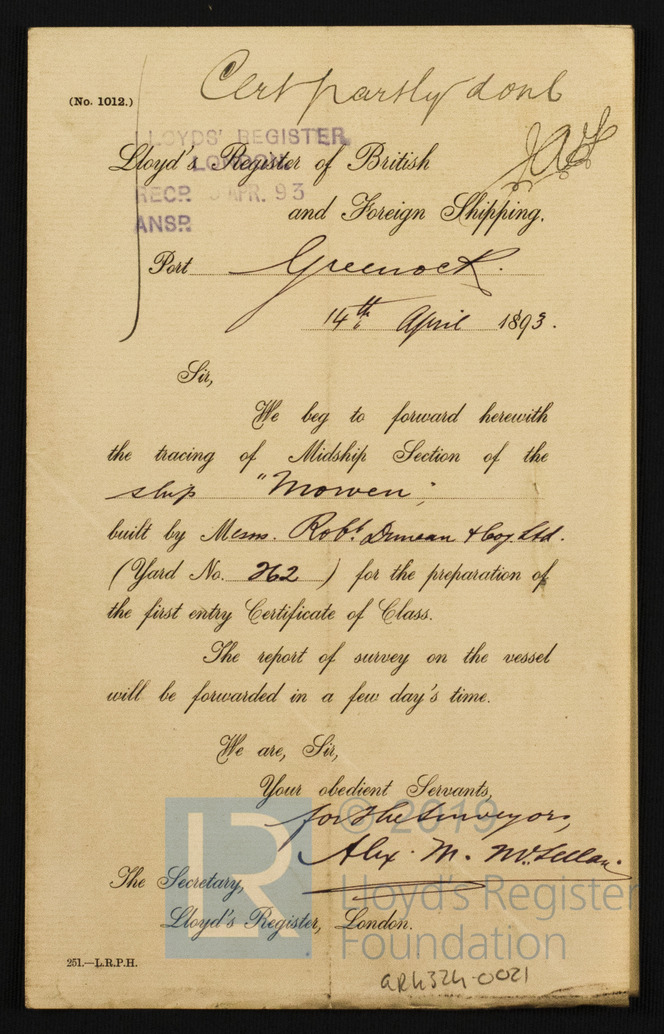 Cert partly done
(No. 1012.)
LLOYDS' REGISTER,
LONDON
RECD. APR. 93
ANSD.
Lloyd's Register of British
and Foreign Shipping.
Port Greenock.
14th April 1893.
Sir,
We beg to forward herewith
the tracing of Midship Section of the
ship "Mowen",
built by Messrs. Robt. Duncan & Coy Ltd.
(Yard No. 262) for the preparation of
the first entry Certificate of Class.
The report of survey on the vessel
will be forwarded in a few day's time.
We are, Sir,
Your obedient Servants,
for the Surveyors,
Alex. M.
The Secretary,
Lloyd's Register, London.
251.—L.R.P.H.
LR
© 2019
Lloyd's Register
Foundation